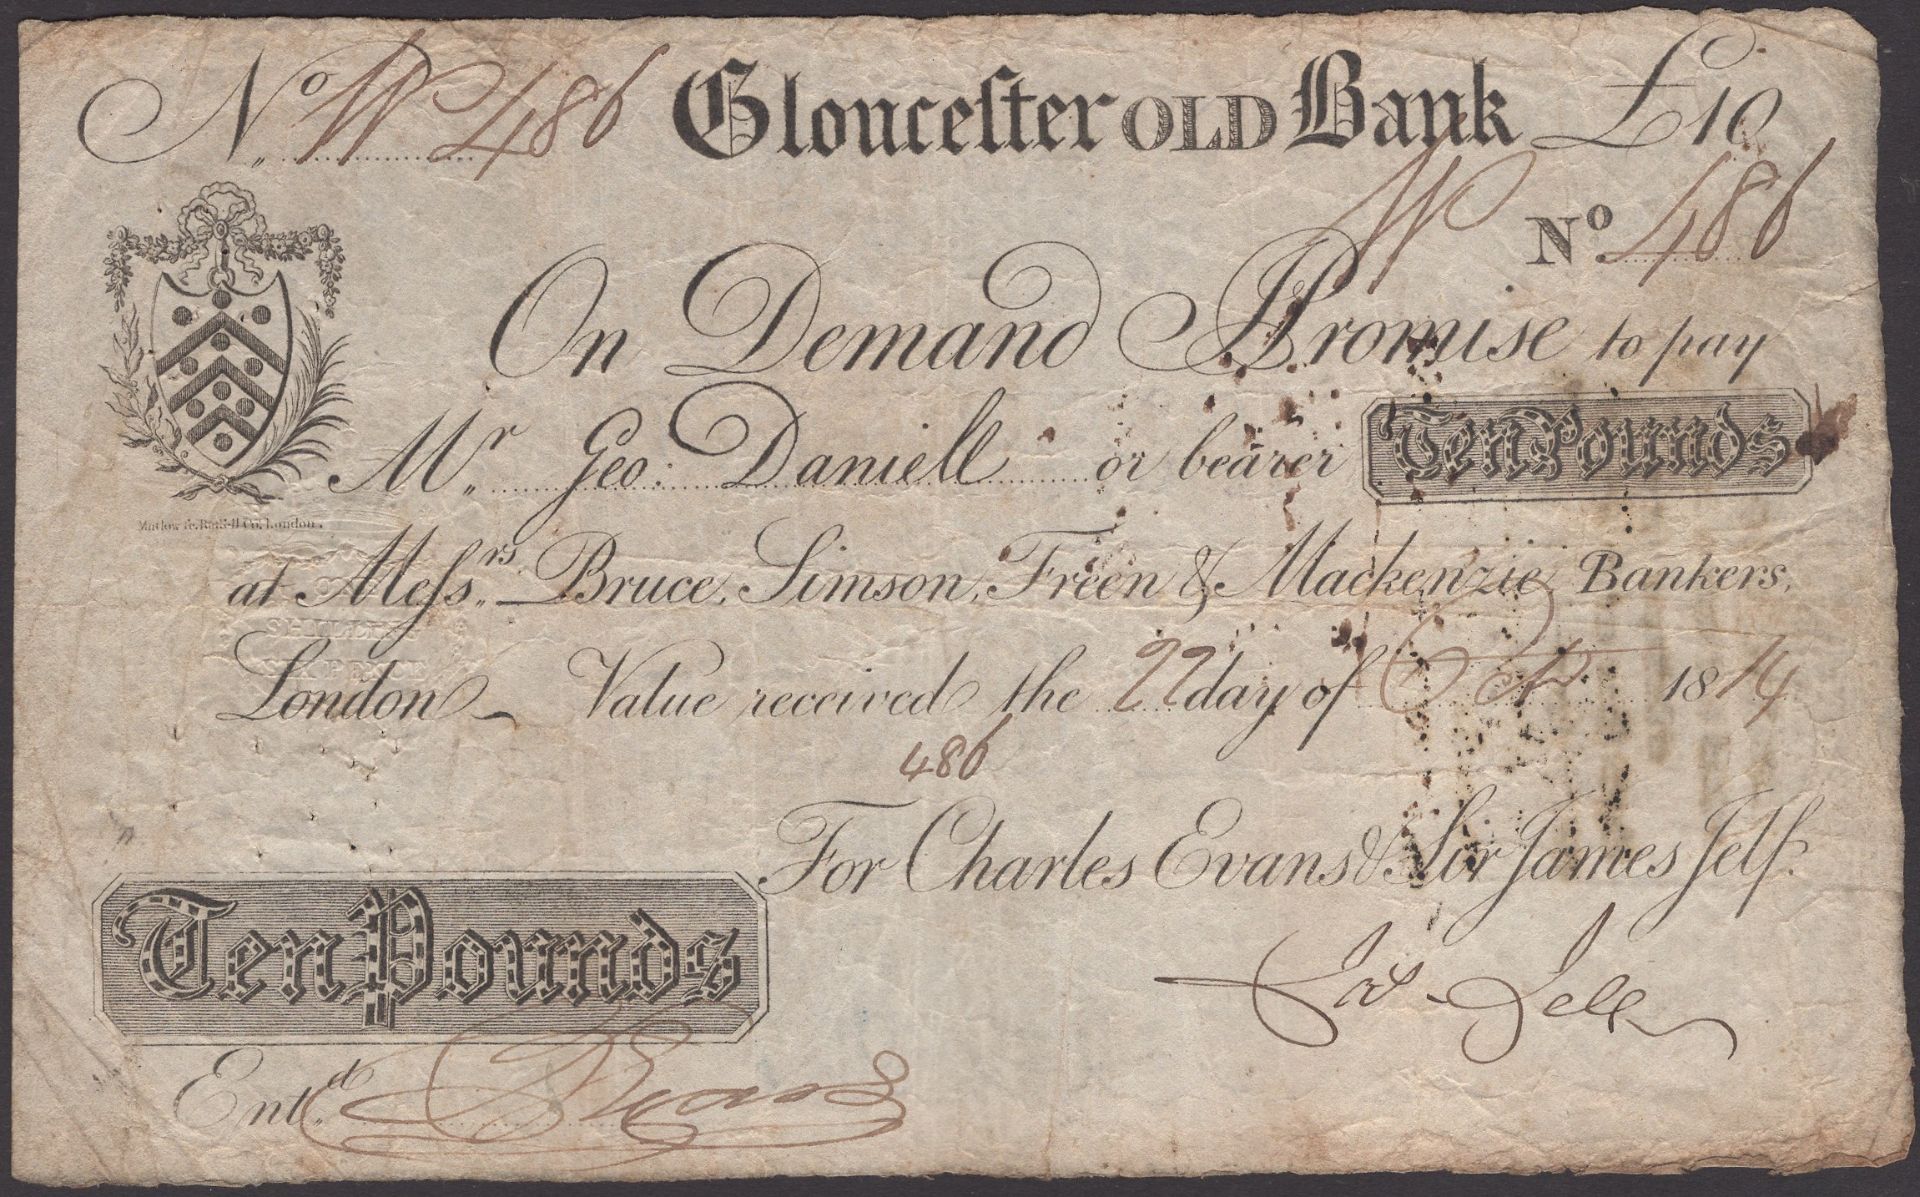 No. W 486 Gloucester OLD Bank £10
W No. 486
On Demand I Promise to pay
Mr. Geo: Daniell or bearer Ten Pounds
at Messrs. Bruce, Simson, Freer & Mackenzie Bankers,
London. Value received the 22 day of Oct 1814
486
For Charles Evans & Sir James Jelf.
Jas Jelf
Ten Pounds
Entd. Evans
London.
SHILLING
SIXPENCE